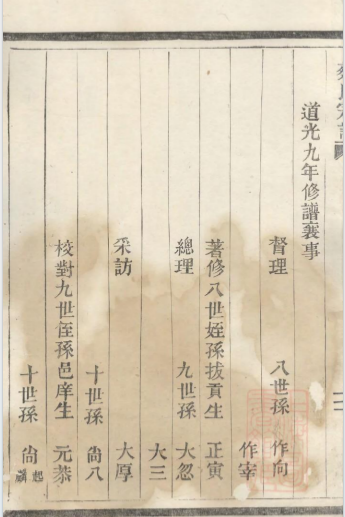 道光九年修譜襄事
督理 八世孫 作向
作宰
著修八世姪孫拔貢生 正寅
總理 九世孫 大忽
大三
采訪 大厚
十世孫 尙八
校對九世侄孫邑庠生 元恭
十世孫 尙起